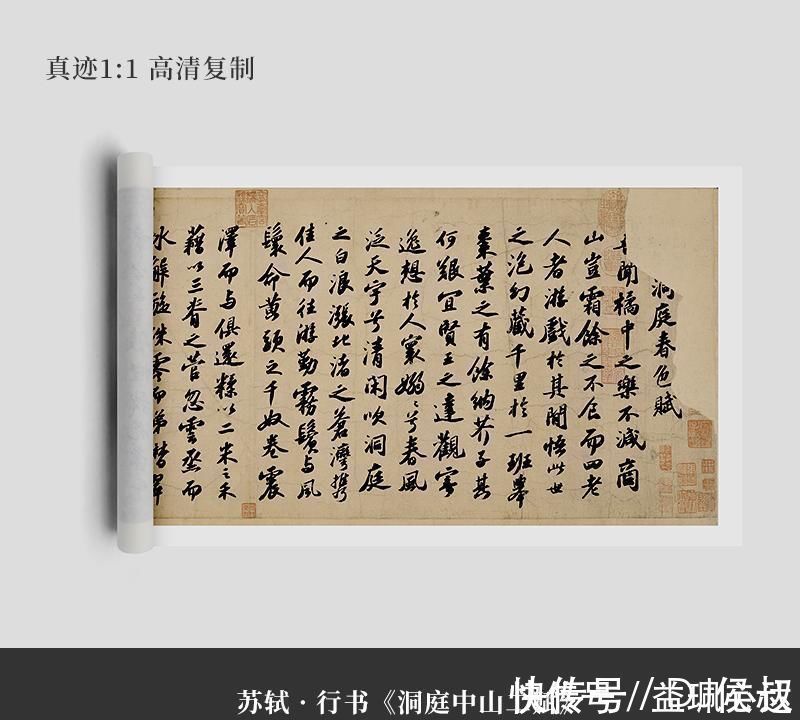 真迹1:1 高清复制
洞庭春色賦
聞橘中之樂不減商
山豈霜餘之不食而四老
人者游戲於其間悟此世
之泡幻藏千里於一班舉
棗葉之有餘納芥子其
何艱宜賢王之達觀寄
逸想於人寰嫋〻兮春風
泛天宇兮清閑吹洞庭
之白浪漲北渚之蒼灣攜
佳人而往游勤霧鬢与風
鬟命黄頭之千奴卷震
澤而与俱還糅以二米之禾
藉以三脊之菅忽雲蒸而
冰解旋珠零而涕潸翠
苏轼 · 行书《洞庭中山
快传号